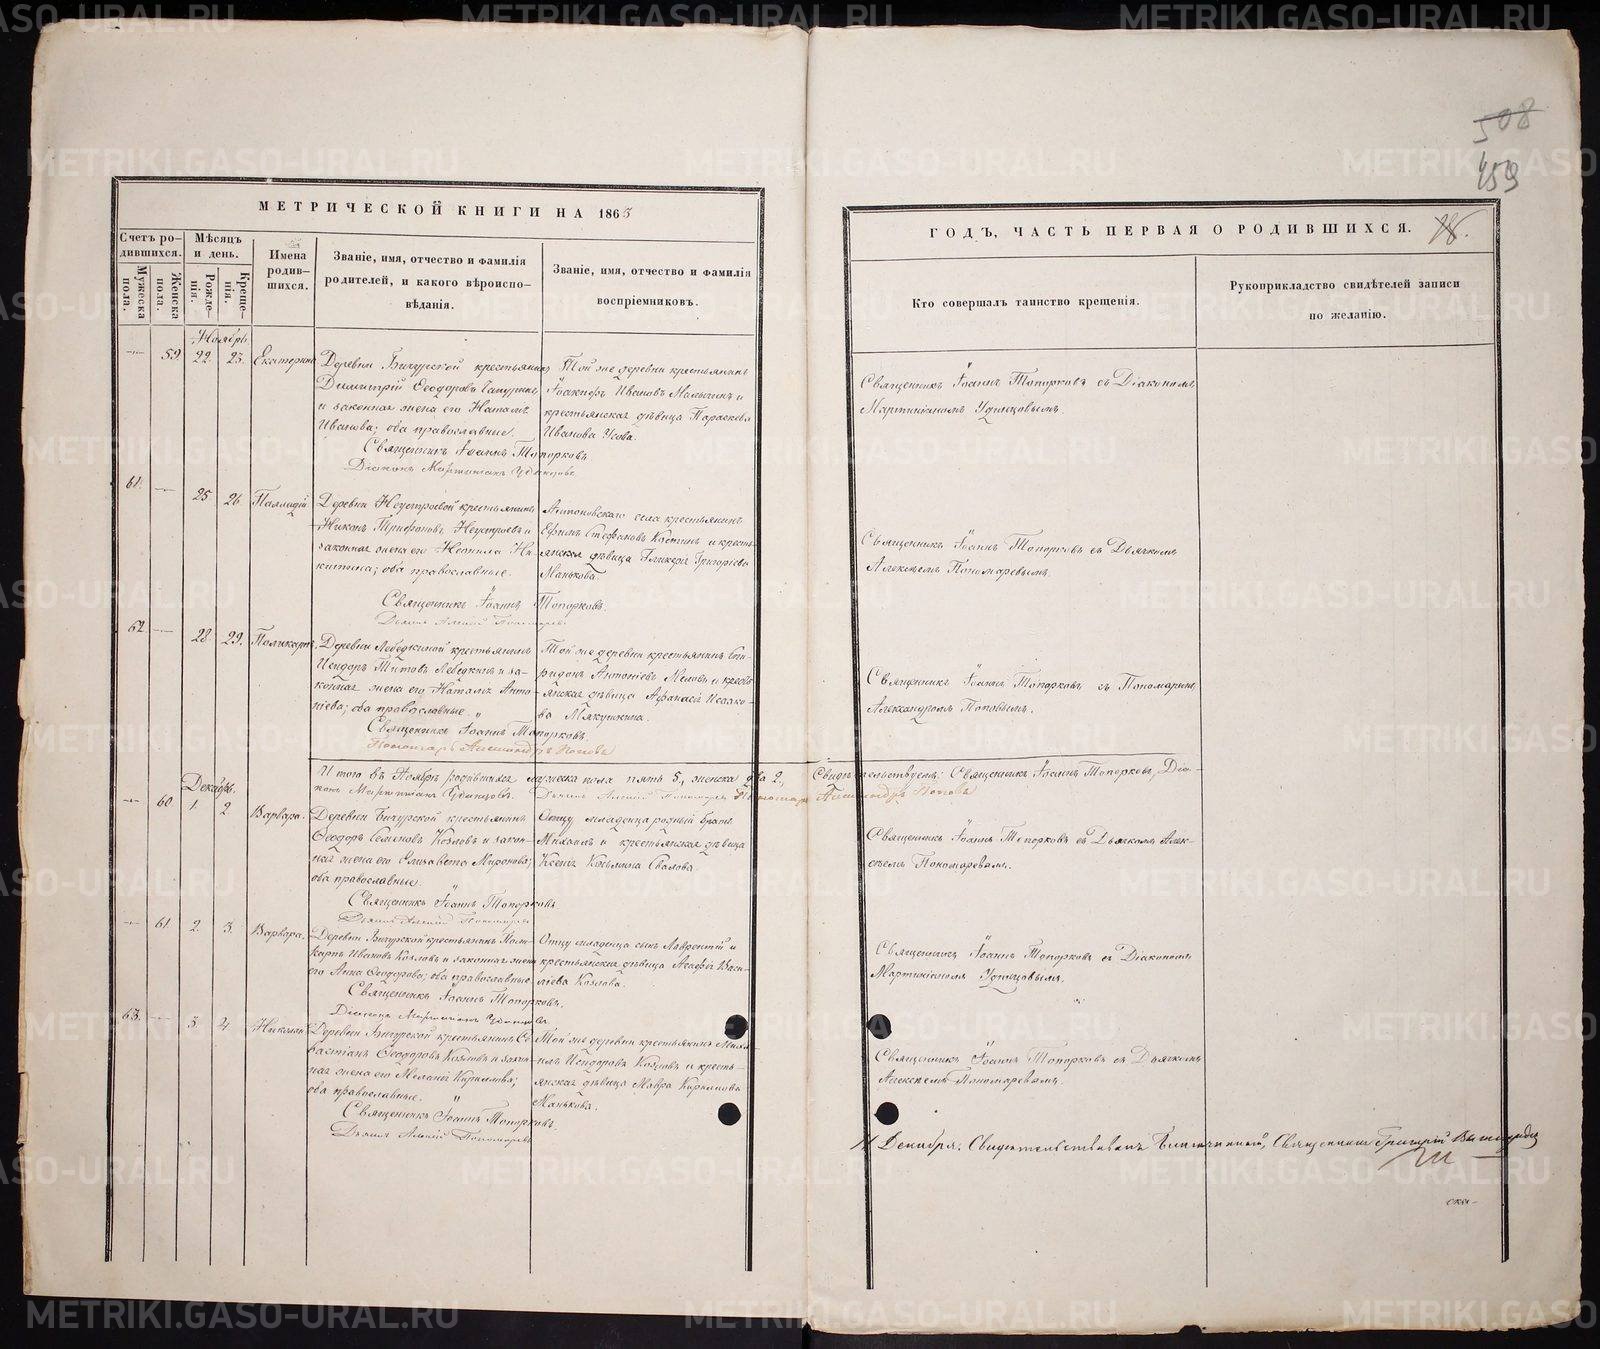 508
459
МЕТРИЧЕСКОЙ КНИГИ НА 1863
ГОДЪ, ЧАСТЬ ПЕРВАЯ О РОДИВШИХСЯ.
Счетъ ро-
дившихся.
Мужеска
пола.
Женска
пола.
Мѣсяцъ
и день.
Рожде-
нія.
Креще-
нія.
Имена
родив-
шихся.
Званіе, имя, отчество и фамилія
родителей, и какого вѣроиспо-
вѣданія.
Званіе, имя, отчество и фамилія
воспріемниковъ.
Кто совершалъ таинство крещенія.
Рукоприкладство свидѣтелей записи
по желанію.
Ноябрь
59. 22 23. Екатерина
Деревни Бичурской крестьянинъ
Димитрій Ѳеодоровъ
и законная жена его Наталія
Иванова; оба православные.
Той же деревни крестьянинъ
Іоакимъ Ивановъ Малыгинъ и
крестьянская дѣвица Параскева
Иванова Усова.
Священникъ Іоаннъ Топорковъ съ Діакономъ
Мартиніаномъ Удинцовымъ.
Священникъ Іоаннъ Топорковъ
Діаконъ Мартиніанъ Удинцовъ
61. 25 26 Палладій
Деревни Неустроевой крестьянинъ
Никонъ Трифоновъ Неустроевъ и
законная жена его Неонила Ни-
китина; оба православные.
Антоновскаго села крестьянинъ
Ефимъ Стефановъ Костинъ и кресть-
янская дѣвица Гликерія Григоріева
Манькова.
Священникъ Іоаннъ Топорковъ съ Дьячкомъ
Алексѣемъ Пономаревымъ.
Священникъ Іоаннъ Топорковъ.
Дьячекъ Алексій Пономаревъ
62. 28 29. Поликарпъ.
Деревни Лебедкиной крестьянинъ
Исидоръ Титовъ Лебедкинъ и за-
конная жена его Наталія Анто-
ніева; оба православные
Той же деревни крестьянинъ Спи-
ридонъ Антоніевъ Меловъ и кресть-
янская дѣвица Афанасія Исаако-
ва Мякушкина.
Священникъ Іоаннъ Топорковъ съ Пономаремъ
Александромъ Поповымъ.
Священникъ Іоаннъ Топорковъ.
Пономарь Александръ Поповъ
Итого въ Ноябрѣ родившихся мужеска пола пять 5., женска два 2., Свидѣтельствуемъ: Священникъ Іоаннъ Топорковъ, Діа-
конъ Мартиніанъ Удинцовъ. Дьячекъ Алексій Пономаревъ Пономарь Александръ Поповъ
Декабрь.
60. 1. 2 Варвара.
Деревни Бичурской крестьянинъ
Ѳеодоръ Семеновъ Козловъ и закон-
ная жена его Елизавета Миронова;
оба православные.
Отцу младенца родный братъ
Михаилъ и крестьянская дѣвица
Ксенія Козьмина Свалова.
Священникъ Іоаннъ Топорковъ съ Дьячкомъ Алек-
сѣемъ Пономаревымъ.
Священникъ Іоаннъ Топорковъ
Дьячекъ Алексій Пономаревъ
61. 2. 3. Варвара.
Деревни Бичурской крестьянинъ Поли-
карпъ Ивановъ Козловъ и законная жена
его Анна Ѳеодорова; оба православные
Отцу младенца сынъ Лаврентій и
крестьянская дѣвица Агафія Васи-
ліева Козлова.
Священникъ Іоаннъ Топорковъ съ Діакономъ
Мартиніаномъ Удинцовымъ.
Священникъ Іоаннъ Топорковъ.
Діаконъ Мартиніанъ Удинцовъ.
63. 3. 4. Николай
Деревни Бичурской крестьянинъ Се-
вастіанъ Ѳеодоровъ Козловъ и закон-
ная жена его Меланія Кириллова;
оба православные.
Той же деревни крестьянинъ Миха-
илъ Исидоровъ Козловъ и кресть-
янская дѣвица Мавра Кириллова
Манькова.
Священникъ Іоаннъ Топорковъ съ Дьячкомъ
Алексѣемъ Пономаревымъ.
Священникъ Іоаннъ Топорковъ.
Дьячекъ Алексій Пономаревъ
11 Декабря. Свидѣтельствовалъ Благочинный, Священникъ Григорій
METRIKI.GASO-URAL.RU